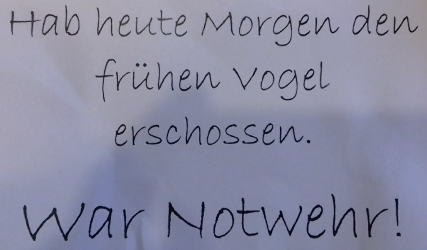 Hab heute Morgen den
frühen Vogel
erschossen.
War Notwehr!